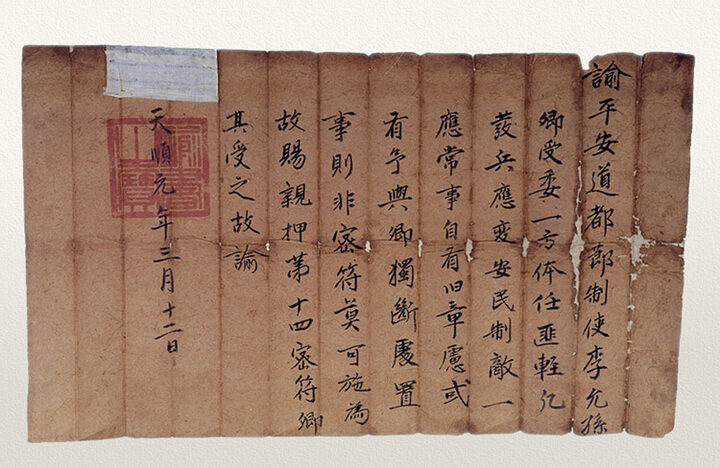 諭平安道都節制使李允孫
卿受委一方体任匪輕凡
發兵應変安民制敵一
應常事自有旧章慮或
有予與卿獨斷處置
事則非密符莫可施為
故賜親押第十四密符卿
其受之故諭
天順元年三月十二日
諭書之寶